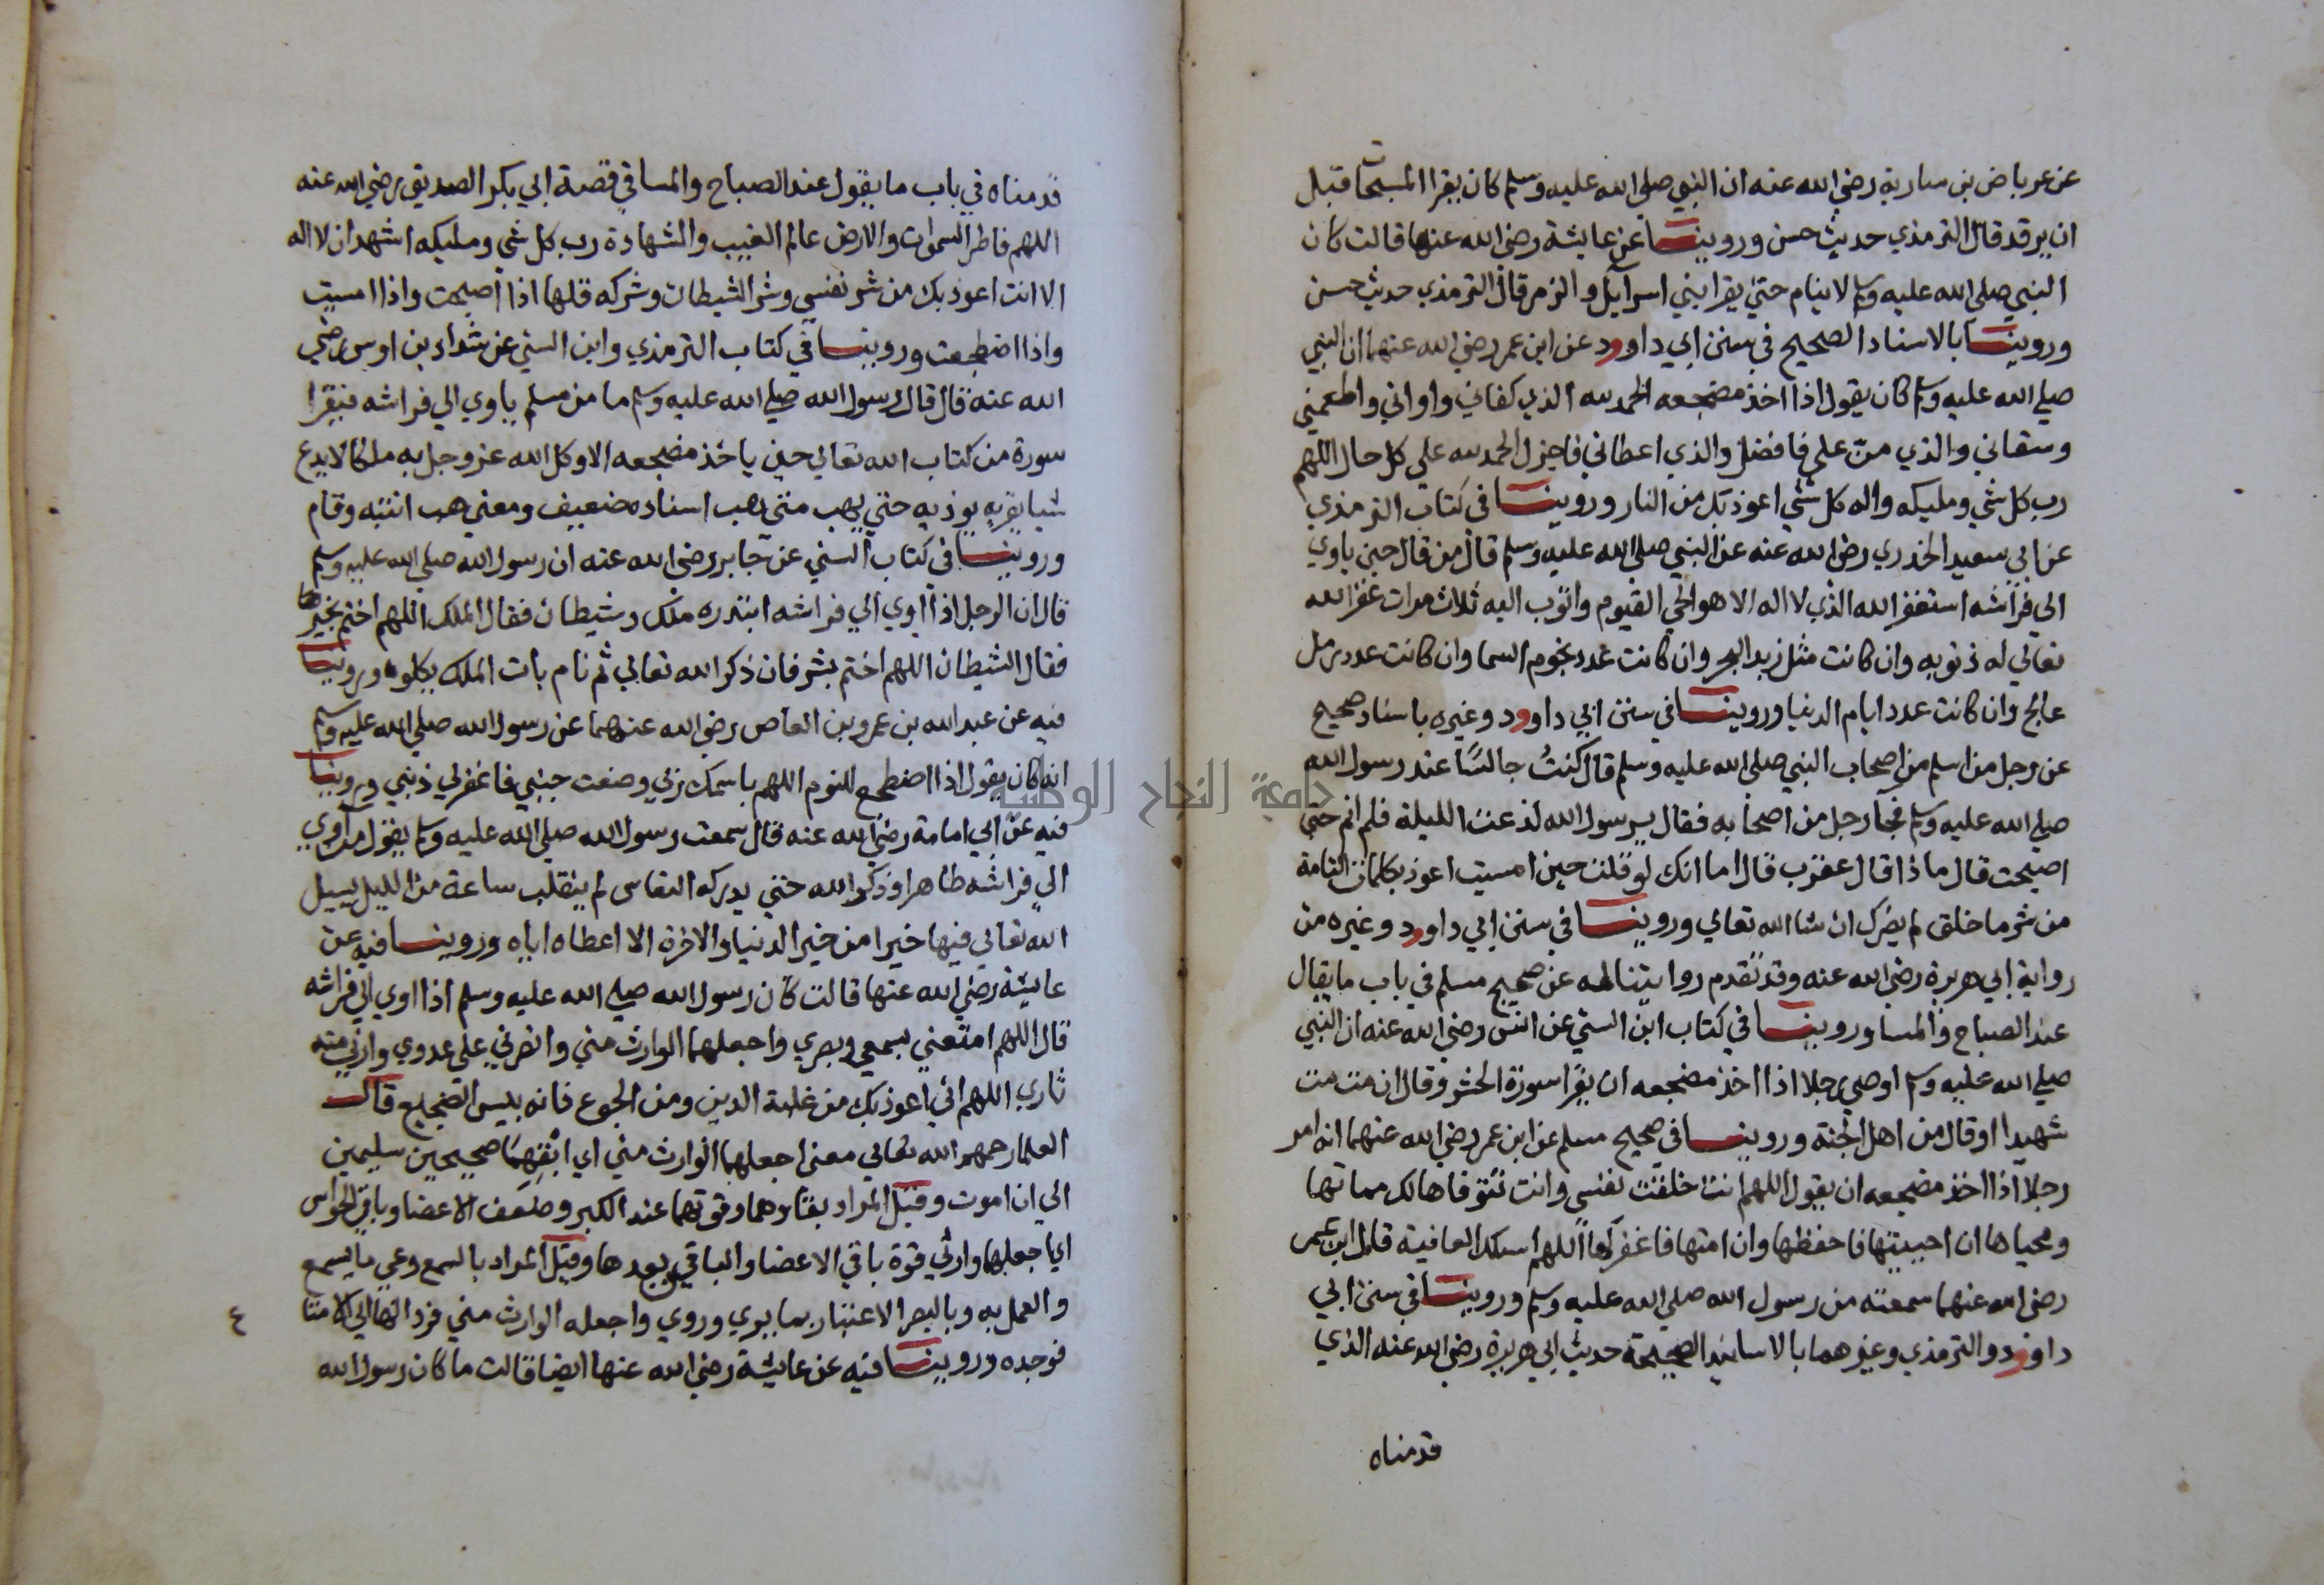 عن عرباض بن سارية رضي الله عنه ان النبي صلى الله عليه وسلم كان يقرا المسبحات قبل
ان يرقد قال الترمذي حديث حسن وروينا عن عايشة رضي الله عنها قالت كان
النبي صلى الله عليه وسلم لا ينام حتي يقرا بني اسرآيل والزمر قال الترمذي حديث حسن
وروينا بالاسناد الصحيح في سنن ابي داوود عن ابن عمر رضي الله عنهما ان النبي
صلي الله عليه وسلم كان يقول اذا اخذ مضجعه الحمد لله الذي كفاني واواني واطعمني
وسقاني والذي منّ علي فافضل والذي اعطاني فاجزل الحمد لله علي كل حال اللهم
رب كل شي ومليكه واله كل شي اعوذ بك من النار وروينا في كتاب الترمذي
عن ابي سعيد الخدري رضي الله عنه عن النبي صلي الله عليه وسلم قال من قال حين ياوي
الي فراشه استغفر الله الذي لا اله الا هو الحي القيوم واتوب اليه ثلاث مرات غفر الله
تعالي له ذنوبه وان كانت مثل زبد البحر وان كانت عدد نجوم السما وان كانت عدد رمل
عالج وان كانت عدد ايام الدنيا وروينا في سنن ابي داوود وغيره باسناد صحيح
عن رجل من اسلم من اصحاب النبي صلى الله عليه وسلم قال كنتُ جالسًا عند رسول الله
صلي الله عليه وسلم فجا رجل من اصحابه فقال يرسول الله لذعت الليلة فلم انم حتي
اصبحت قال ماذا قال عقرب قال اما انك لو قلت حين امسيت اعوذ بكلمات التامة
من شر ما خلق لم يضرك ان شا الله تعالي وروينا في سنن ابي داود وغيره من
رواية ابي هريرة رضي الله عنه وقد تقدم روايتنا له عن صحيح مسلم في باب ما يقال
عند الصباح والمسا وروينا في كتاب ابن السني عن انس رضي الله عنه ان النبي
صلي الله عليه وسلم اوصي رجلا اذا اخذ مضجعه ان يقرا سورة الحشر وقال ان مت مت
شهيدا او قال من اهل الجنة وروينا في صحيح مسلم عن ابن عمر رضي الله عنهما انه امر
رجلا اذا اخذ مضجعه ان يقول اللهم انت خلقت نفسي وانت تتوفاها لك مماتها
ومحياها ان احييتها فاحفظها وان امتها فاغفر لها اللهم اسلك العافية قال ابن عمر
رضي الله عنهما سمعته من رسول الله صلي الله عليه وسلم وروينا في سنن ابي
داوود والترمذي وغيرهما بالاسانيد الصحيحة حديث ابي هريرة رضي الله عنه الذي
قدمناه
قدمناه في باب ما يقول عند الصباح والمسا في قصة ابي بكر الصديق رضي الله عنه
اللهم فاطر السموات والارض عالم الغيب والشهادة رب كل شي ومليكه اشهد ان لا اله
الا انت اعوذ بك من شر نفسي وشر الشيطان وشركه قلها اذا اصبحت واذا امسيت
واذا اضطجعت وروينا في كتاب الترمذي وابن السني عن شداد بن اوس رضي
الله عنه قال قال رسول الله صلي الله عليه وسلم ما من مسلم ياوي الي فراشه فيقرا
سورة من كتاب الله تعالي حين ياخذ مضجعه الا وكل الله عز وجل به ملكا لا يدع
شيا يقربه يوذيه حتي يهب متي هب اسناده ضعييف ومعني هب انتبه وقام
وروينا في كتاب السني عن جابر رضي الله عنه ان رسول الله صلي الله عليه وسلم
قال ان الرجل اذا اوي الي فراشه ابتدره ملك وشيطان فقال الملك اللهم اختم بخير
فقال الشيطان اللهم اختم بشر فان ذكر الله تعالي ثم نام بات الملك يكلوه وروينا
فيه عن عبد الله بن عمرو بن العاص رضي الله عنهما عن رسول الله صلي الله عليه وسلم
انه كان يقول اذا اضطجع للنوم اللهم باسمك ربي وضعت جنبي فاغفر لي ذنبي وروينا
فيه عن ابي امامة رضي الله عنه قال سمعت رسول الله صلي الله عليه وسلم يقول من اوي
الي فراشه طاهرا وذكر الله حتي يدركه النعاس لم ينقلب ساعة من الليل يسيل
الله تعالي فيها خيرا من خير الدنيا والاخرة الا اعطاه اياه وروينا فيه عن
عايشة رضي الله عنها قالت كان رسول الله صلي الله عليه وسلم اذا اوي الي فراشه
قال اللهم امتعني بسمعي وبصري واجعلهما الوارث مني وانصرني علي عدوي وارني منه
ثاري اللهم اني اعوذ بك من غلبة الدين ومن الجوع فانه بيس الضجيع قال
العلما رحمهم الله تعالي معني اجعلهما الوارث مني اي ابقهما صحيحين سليمين
الي ان اموت وقيل المراد بقاوهما وقوتهما عند الكبر وضعف الاعضا وباقي الحواس
اي اجعلهما وارثي قوة باقي الاعضا والباقي بعدها وقيل المراد بالسمع وعي ما يسمع
والعمل به وبالبصر الاعتبار بما يري وروي واجعله الوارث مني فرد الها الي الامتاع
فوحده وروينا فيه عن عايشة رضي الله عنها ايضا قالت ما كان رسول الله
٤
جامعة النجاح الوطنية